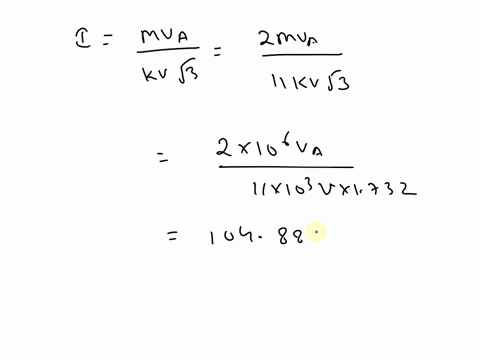 I = MVA / KV√3 = 2MVA / 11KV√3
= 2×10⁶VA / 11×10³V×1.732
= 104.88